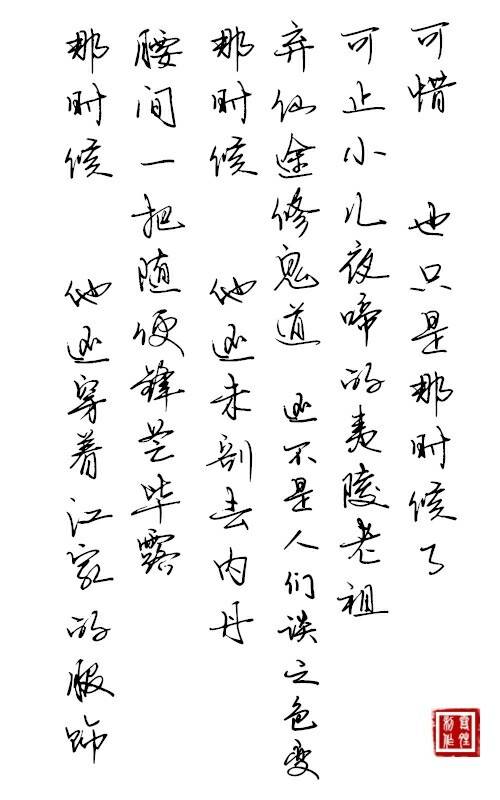 那时候 他还穿着江家的服饰
腰间一把随便锋芒毕露
那时候 他还未剖去内丹
弃仙途修鬼道 还不是人们谈之色变
可止小儿夜啼的夷陵老祖
可惜 也只是那时候了